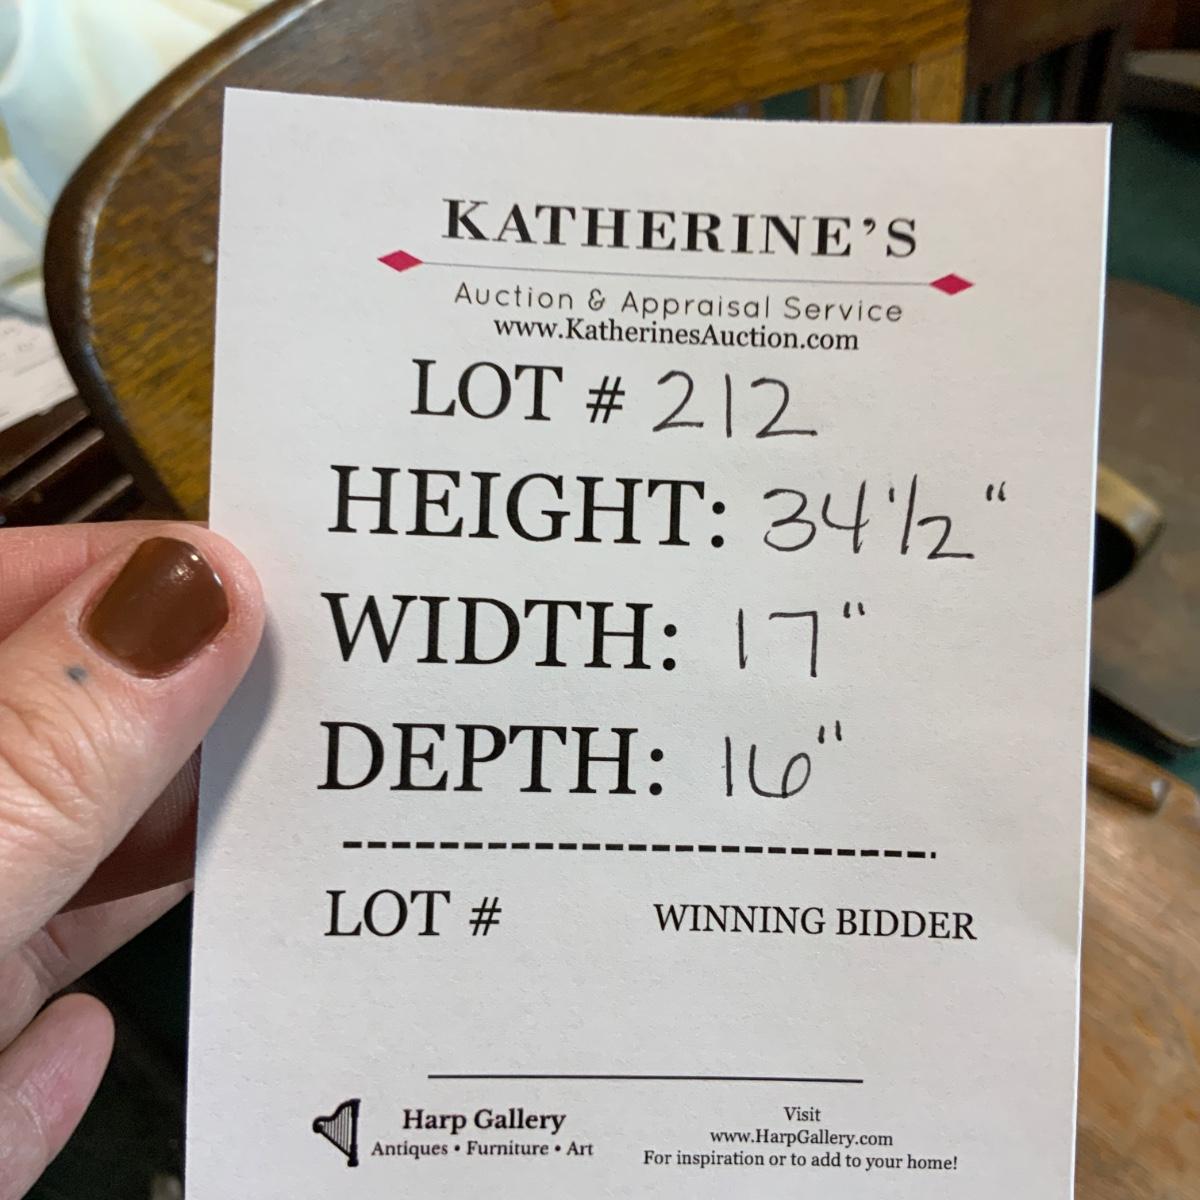 KATHERINE'S
Auction & Appraisal Service
www.KatherinesAuction.com
LOT # 212
HEIGHT: 34 1/2 "
WIDTH: 17"
DEPTH: 16"
LOT # WINNING BIDDER
Harp Gallery
Antiques • Furniture • Art
Visit
www.HarpGallery.com
For inspiration or to add to your home!